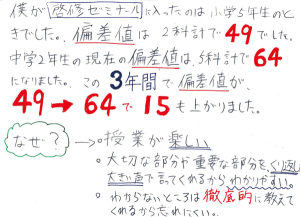 僕が啓修ゼミナールに入ったのは小学5年生のと
きでした。偏差値は2科計で49でした。
中学2年生の現在の偏差値は、5科計で64
になりました。この3年間で偏差値が、
49→64で15も上がりました。
なぜ?→授業が楽しい
。大切な部分や重要な部分をくり返し
大きい声で言ってくれるからわかりやすい。
。わからないところは徹底的に教えて
くれるから忘れにくい。